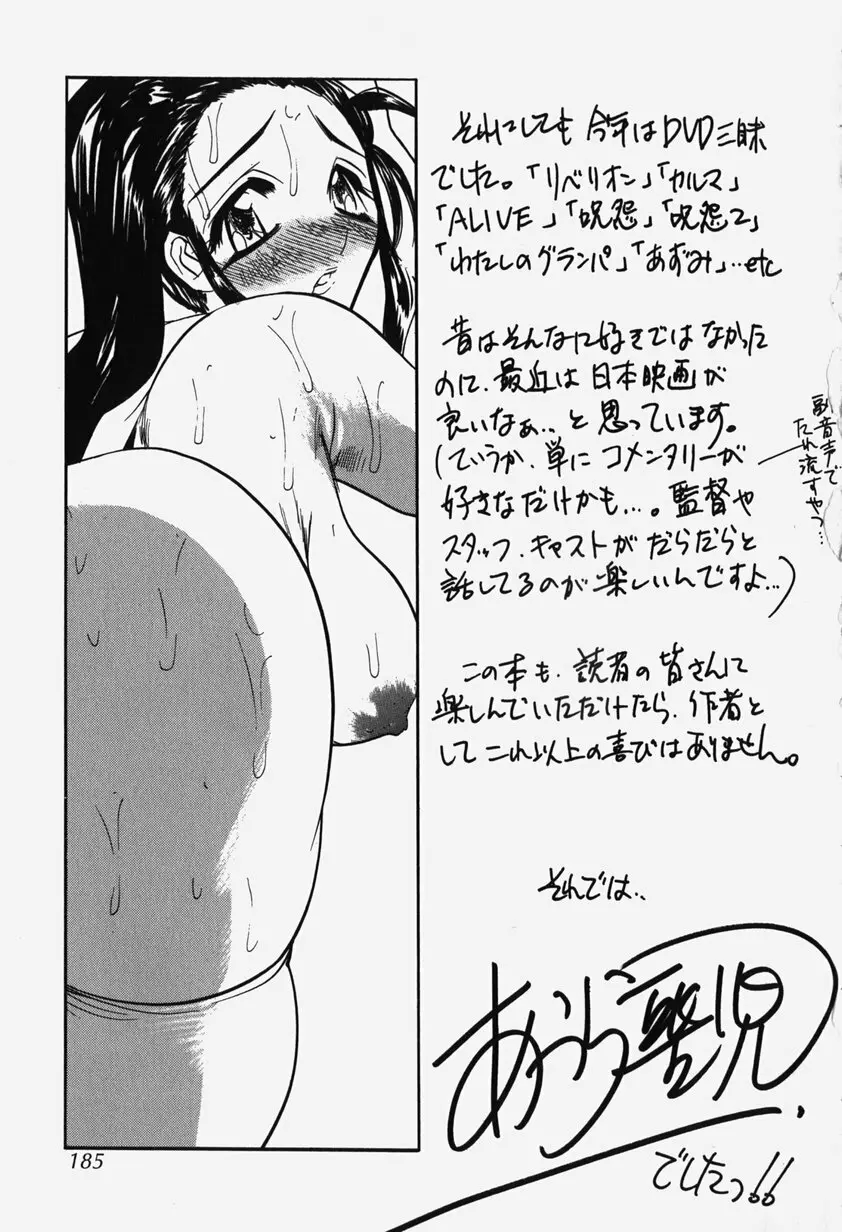 それにしても今年はDVD三昧
でした。「リベリオン」「カルマ」
「ALIVE」「呪怨」「呪怨2」
「わたしのグランパ」「あずみ」…etc
昔はそんなに好きではなかった
のに、最近は日本映画が
良いなぁ… と思っています。
(ていうか、単にコメンタリーが
好きなだけかも…。監督や
スタッフ、キャストがだらだらと
話してるのが楽しいんですよ…)
副音声で
たれ流すやつ…
この本も、読者の皆さんに
楽しんでいただけたら、作者と
してこれ以上の喜びはありません。
それでは、、
でしたっ!!
185